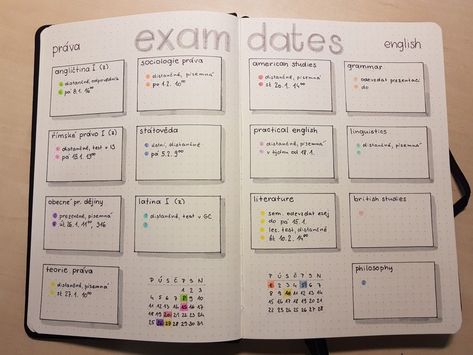 práva
exam dates
english
angličtina I (z)
distančně, odpovědník
pá 8.1. 14⁰⁰
sociologie práva
distančně, písemná
po 1.2. 10⁰⁰
římské právo I (z)
distančně, test v IS
pá 15.1. 13⁰⁰
státověda
ústní, distančně
pá 5.2. 9⁰⁰
obecné pr. dějiny
prezenčně, písemná
út 26.1. 11⁰⁰, 316
latina I (z)
distančně, test v GC
teorie práva
distančně, písemná
st 27.1. 10⁰⁰
P Ú S Č P S N
1 2 3
4 5 6 7 8 9 10
11 12 13 14 15 16 17
18 19 20 21 22 23 24
25 26 27 28 29 30 31
american studies
distančně, písemná
st 20.1. 14⁰⁰
grammar
odevzdat prezentaci
do
practical english
distančně, písemná
v týdnu od 18.1.
linguistics
distančně, písemná
literature
sem. odevzdat esej
do po 15.1.
lec. test, distančně
st 10.2. 14⁰⁰
british studies
philosophy
P Ú S Č P S N
1 2 3 4 5 6 7
8 9 10 11 12 13 14
15 16 17 18 19 20 21
22 23 24 25 26 27 28